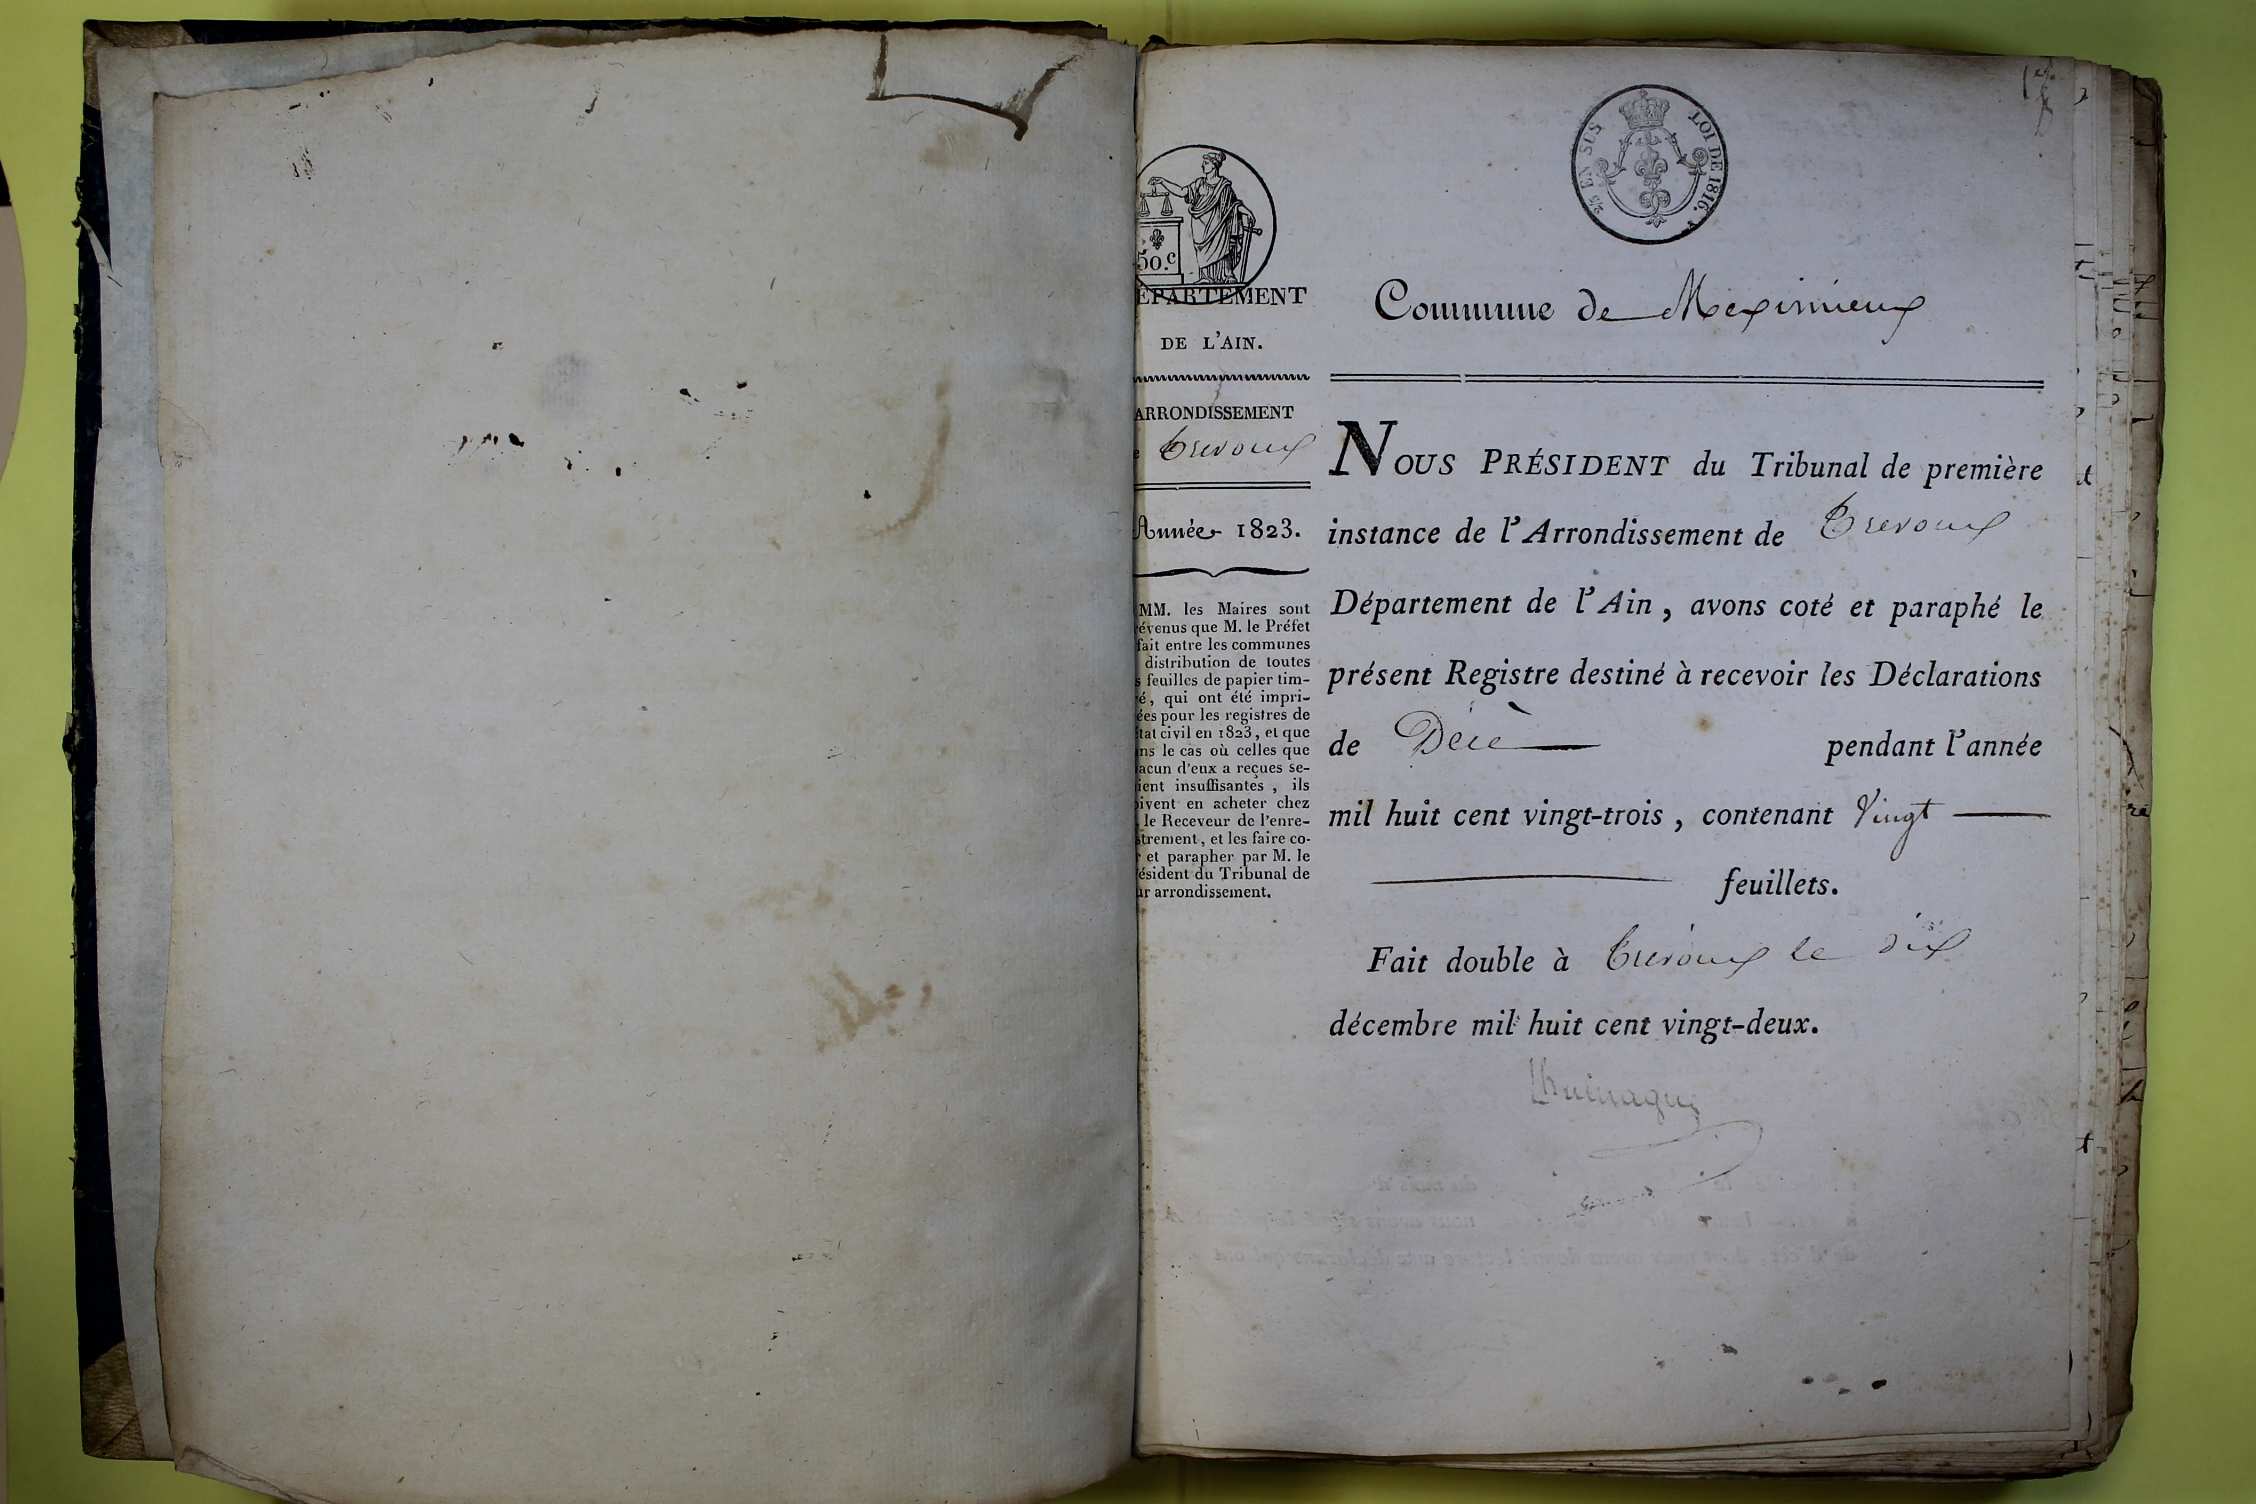 50.c
2/5 EN SUS
LOI DE 1816.
ÉPARTEMENT
DE L'AIN.
ARRONDISSEMENT
e Trevoux
Année 1823.
MM. les Maires sont
révenus que M. le Préfet
fait entre les communes
distribution de toutes
s feuilles de papier tim-
ré, qui ont été impri-
ées pour les registres de
état civil en 1823, et que
ans le cas où celles que
acun d'eux a reçues se-
ient insuffisantes, ils
oivent en acheter chez
le Receveur de l'enre-
strement, et les faire co-
r et parapher par M. le
ésident du Tribunal de
ur arrondissement.
Commune de Meximieux
NOUS PRÉSIDENT du Tribunal de première
instance de l'Arrondissement de Trevoux
Département de l'Ain, avons coté et paraphé le
présent Registre destiné à recevoir les Déclarations
de Décè pendant l'année
mil huit cent vingt-trois, contenant Vingt
feuillets.
Fait double à Trévoux le dix
décembre mil huit cent vingt-deux.